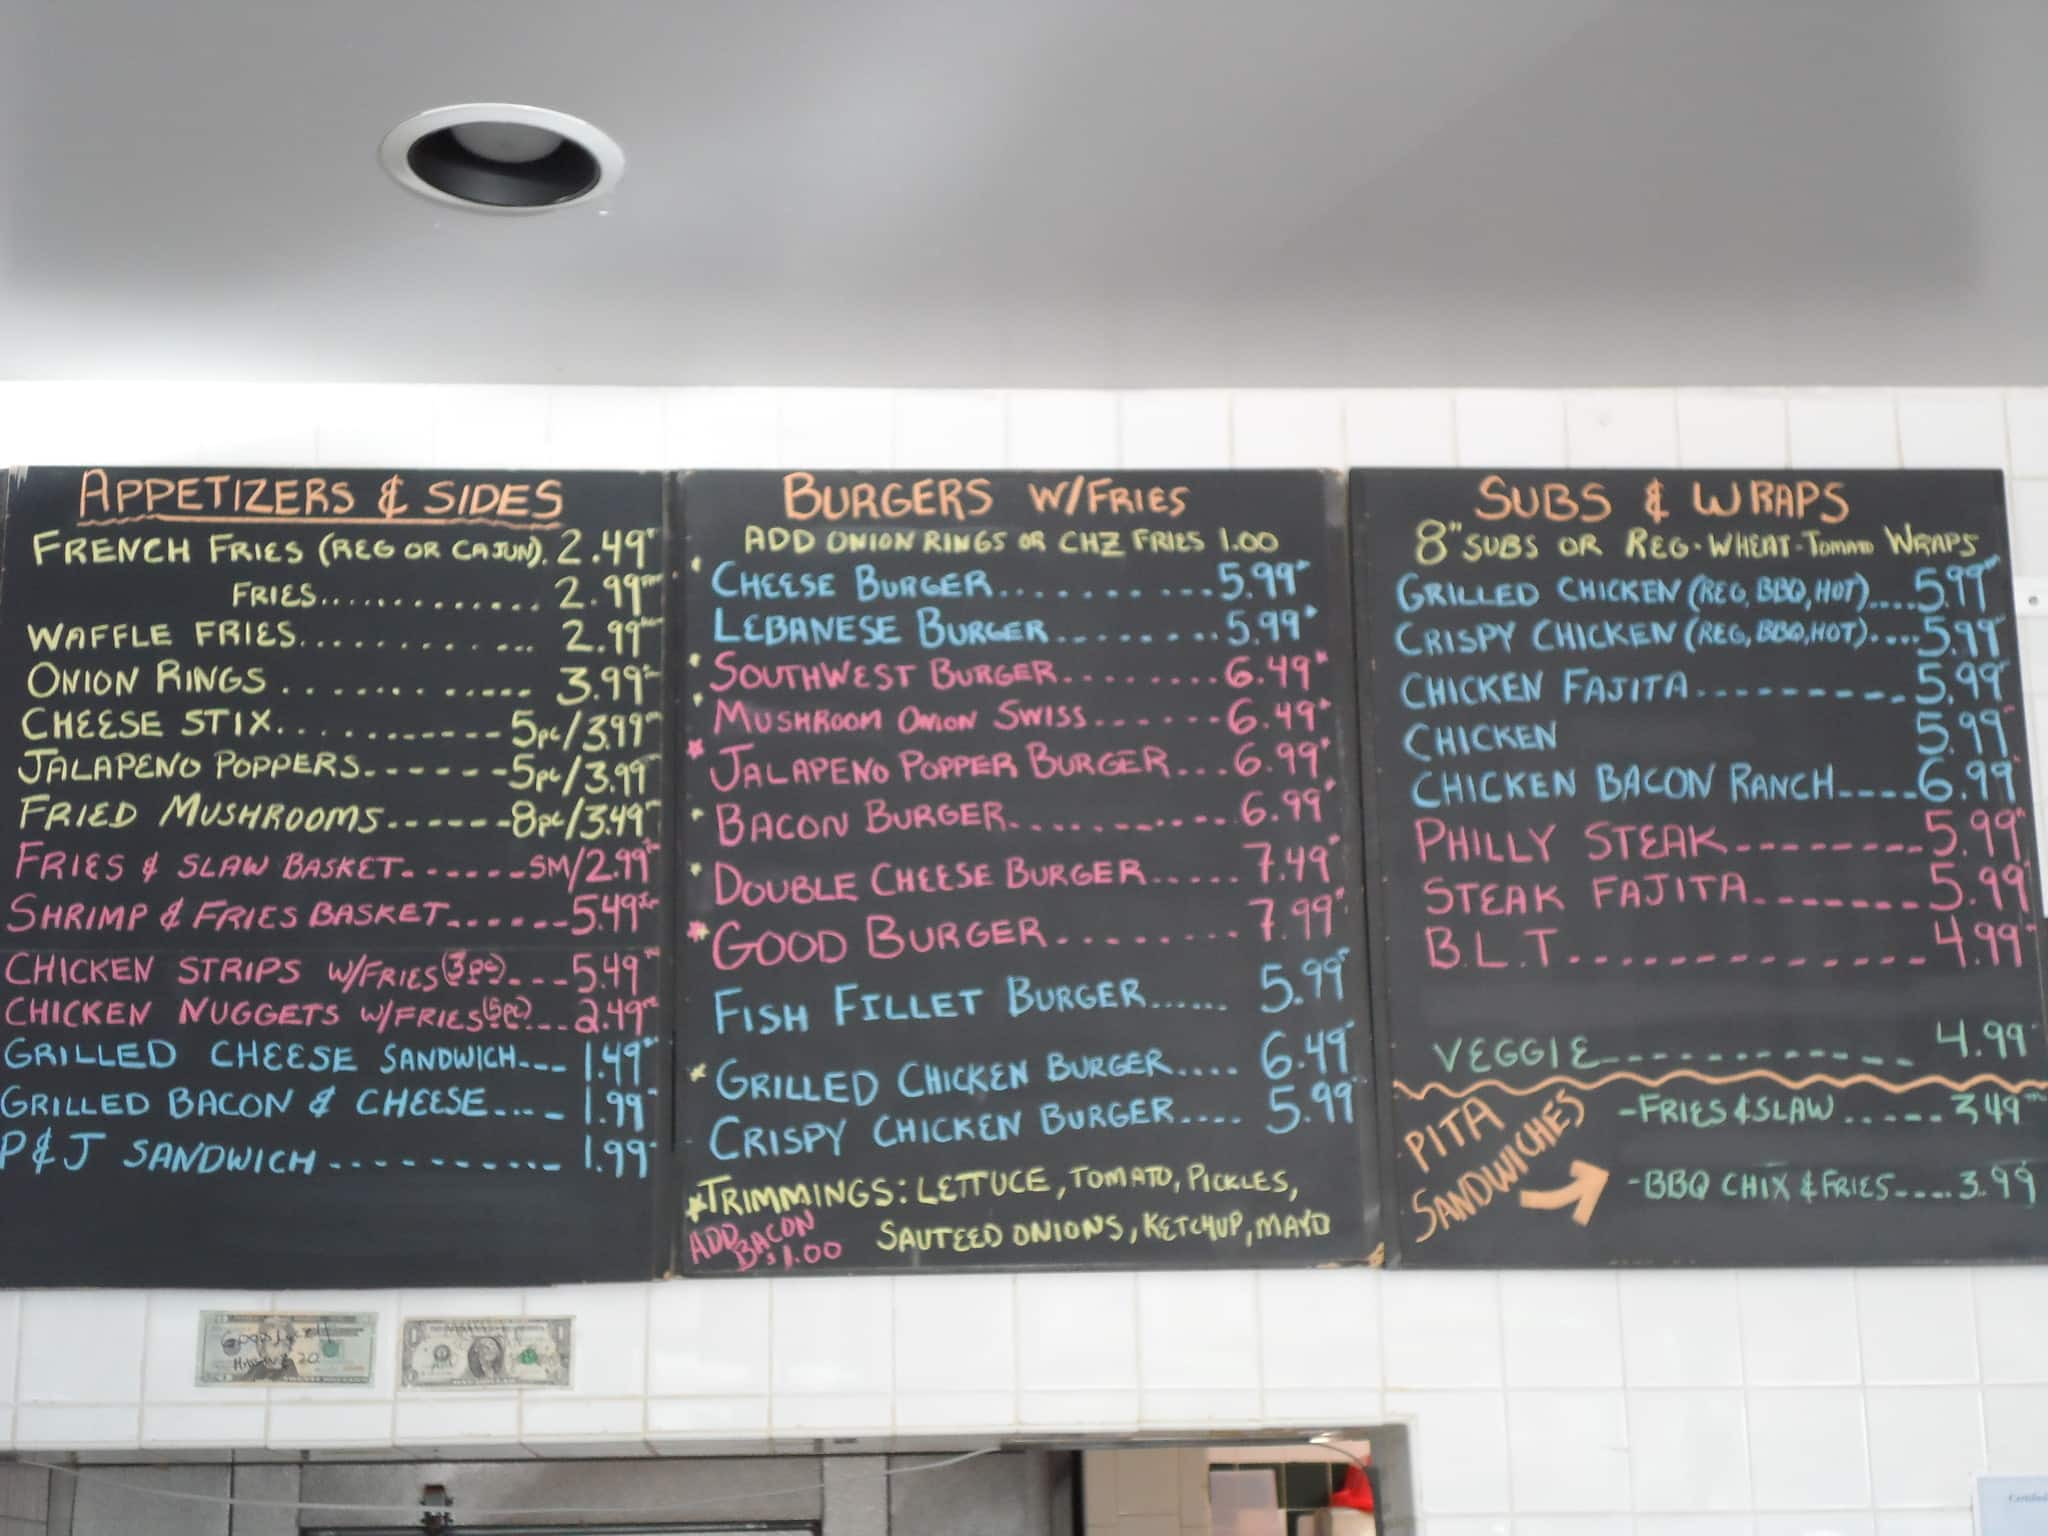 APPETIZERS & SIDES
FRENCH FRIES (REG OR CAJUN). 2.49
FRIES............. 2.99
WAFFLE FRIES............ 2.99
ONION RINGS ............. 3.99
CHEESE STIX........... 5pc/3.99
JALAPENO POPPERS.------5pc/3.99
FRIED MUSHROOMS.------8pc/3.49
FRIES & SLAW BASKET.------SM/2.99
SHRIMP & FRIES BASKET......5.49
CHICKEN STRIPS W/FRIES (3pc)...5.49
CHICKEN NUGGETS W/FRIES (5pc)...2.49
GRILLED CHEESE SANDWICH--- 1.49
GRILLED BACON & CHEESE.... 1.99
P&J SANDWICH---------- 1.99
BURGERS W/FRIES
ADD ONION RINGS OR CHZ FRIES 1.00
CHEESE BURGER..........5.99
LEBANESE BURGER........5.99
SOUTHWEST BURGER........6.49
MUSHROOM ONION SWISS......6.49
JALAPENO POPPER BURGER...6.99
BACON BURGER...........6.99
DOUBLE CHEESE BURGER.....7.49
GOOD BURGER.........7.99
FISH FILLET BURGER...... 5.99
GRILLED CHICKEN BURGER.... 6.49
CRISPY CHICKEN BURGER.... 5.99
*TRIMMINGS: LETTUCE, TOMATO, PICKLES,
SAUTEED ONIONS, KETCHUP, MAYO
ADD BACON $1.00
SUBS & WRAPS
8" SUBS OR REG-WHEAT-TOMATO WRAPS
GRILLED CHICKEN (REG, BBQ, HOT)....5.99
CRISPY CHICKEN (REG, BBQ, HOT)....5.99
CHICKEN FAJITA----------5.99
CHICKEN 5.99
CHICKEN BACON RANCH----6.99
PHILLY STEAK---------5.99
STEAK FAJITA.-------5.99
B.L.T.-------------4.99
VEGGIE------------- 4.99
PITA SANDWICHES
-FRIES & SLAW.....3.49
-BBQ CHIX & FRIES----3.99